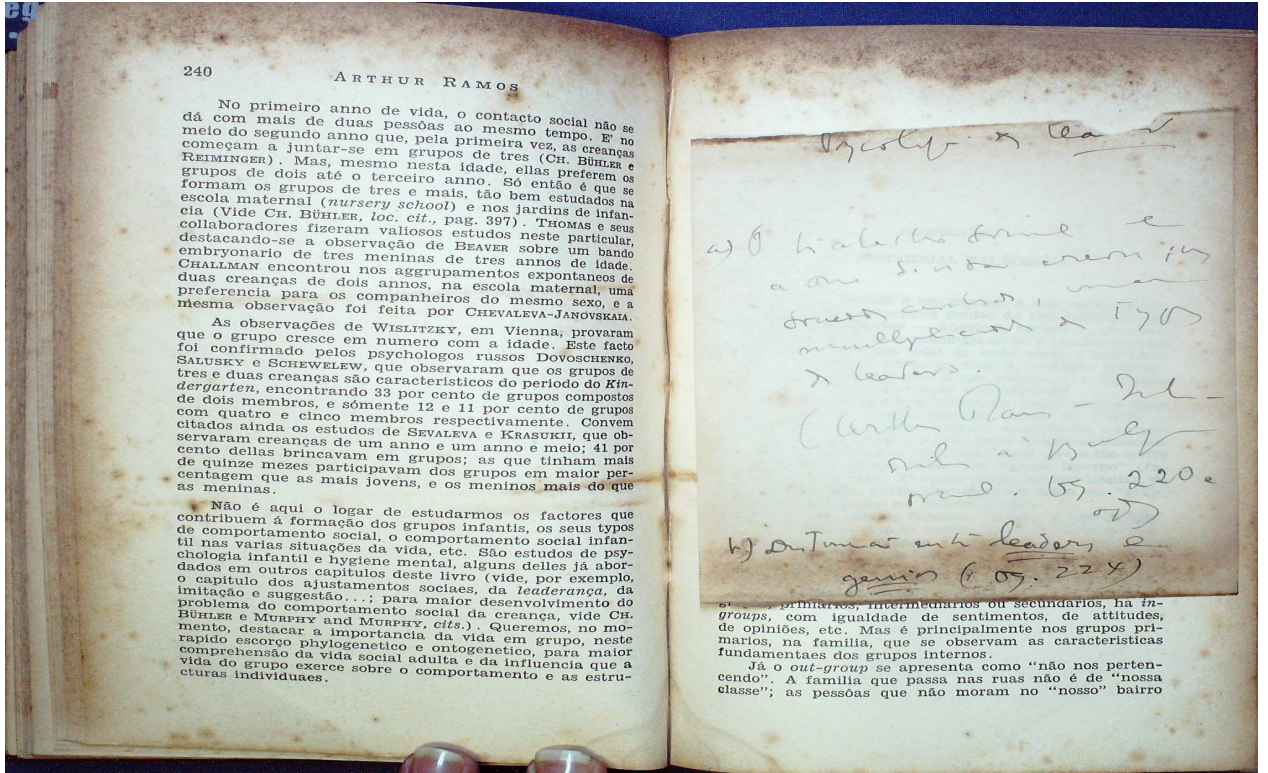 240
ARTHUR RAMOS
No primeiro anno de vida, o contacto social não se
dá com mais de duas pessôas ao mesmo tempo. E' no
meio do segundo anno que, pela primeira vez, as creanças
começam a juntar-se em grupos de tres (CH. BÜHLER e
REIMINGER). Mas, mesmo nesta idade, ellas preferem os
grupos de dois até o terceiro anno. Só então é que se
formam os grupos de tres e mais, tão bem estudados na
escola maternal (nursery school) e nos jardins de infan-
cia (Vide CH. BÜHLER, loc. cit., pag. 397). THOMAS e seus
collaboradores fizeram valiosos estudos neste particular,
destacando-se a observação de BEAVER sobre um bando
embryonario de tres meninas de tres annos de idade.
CHALLMAN encontrou nos aggrupamentos expontaneos de
duas creanças de dois annos, na escola maternal, uma
preferencia para os companheiros do mesmo sexo, e a
mesma observação foi feita por CHEVALEVA-JANOVSKAIA.
As observações de WISLITZKY, em Vienna, provaram
que o grupo cresce em numero com a idade. Este facto
foi confirmado pelos psychologos russos DOVOSCHENKO,
SALUSKY e SCHEWELEW, que observaram que os grupos de
tres e duas creanças são caracteristicos do periodo do Kin-
dergarten, encontrando 33 por cento de grupos compostos
de dois membros, e sómente 12 e 11 por cento de grupos
com quatro e cinco membros respectivamente. Convem
citados ainda os estudos de SEVALEVA e KRASUKII, que ob-
servaram creanças de um anno e um anno e meio; 41 por
cento dellas brincavam em grupos; as que tinham mais
de quinze mezes participavam dos grupos em maior per-
centagem que as mais jovens, e os meninos mais do que
as meninas.
Não é aqui o logar de estudarmos os factores que
contribuem á formação dos grupos infantis, os seus typos
de comportamento social, o comportamento social infan-
til nas varias situações da vida, etc. São estudos de psy-
chologia infantil e hygiene mental, alguns delles já abor-
dados em outros capitulos deste livro (vide, por exemplo,
o capitulo dos ajustamentos sociaes, da leaderança, da
imitação e suggestão...; para maior desenvolvimento do
problema do comportamento social da creança, vide CH.
BÜHLER e MURPHY and MURPHY, cits.). Queremos, no mo-
mento, destacar a importancia da vida em grupo, neste
rapido escorço phylogenetico e ontogenetico, para maior
comprehensão da vida social adulta e da influencia que a
vida do grupo exerce sobre o comportamento e as estru-
cturas individuaes.
a) O
typos
leaders.
(Arthur Ramos -
à
pg. 220 e
b) leaders e
genios (pg. 224)
primarios, intermediarios ou secundarios, ha in-
groups, com igualdade de sentimentos, de attitudes,
de opiniões, etc. Mas é principalmente nos grupos pri-
marios, na familia, que se observam as caracteristicas
fundamentaes dos grupos internos.
Já o out-group se apresenta como “não nos perten-
cendo”. A familia que passa nas ruas não é de “nossa
classe”; as pessôas que não moram no “nosso” bairro